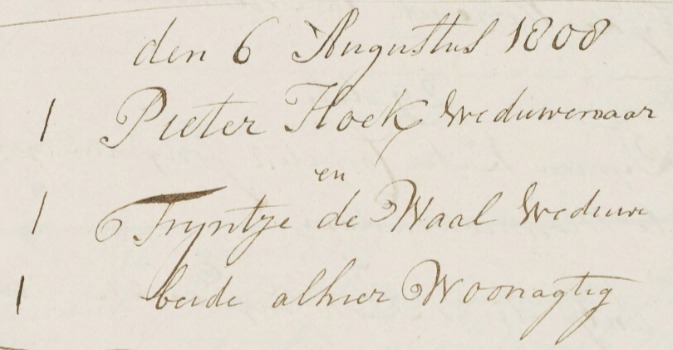 den 6 Augustus 1808
1 Pieter Hoek Weduwenaar
en
1 Tryntje de Waal Weduwe
1 beide alhier Woonagtig